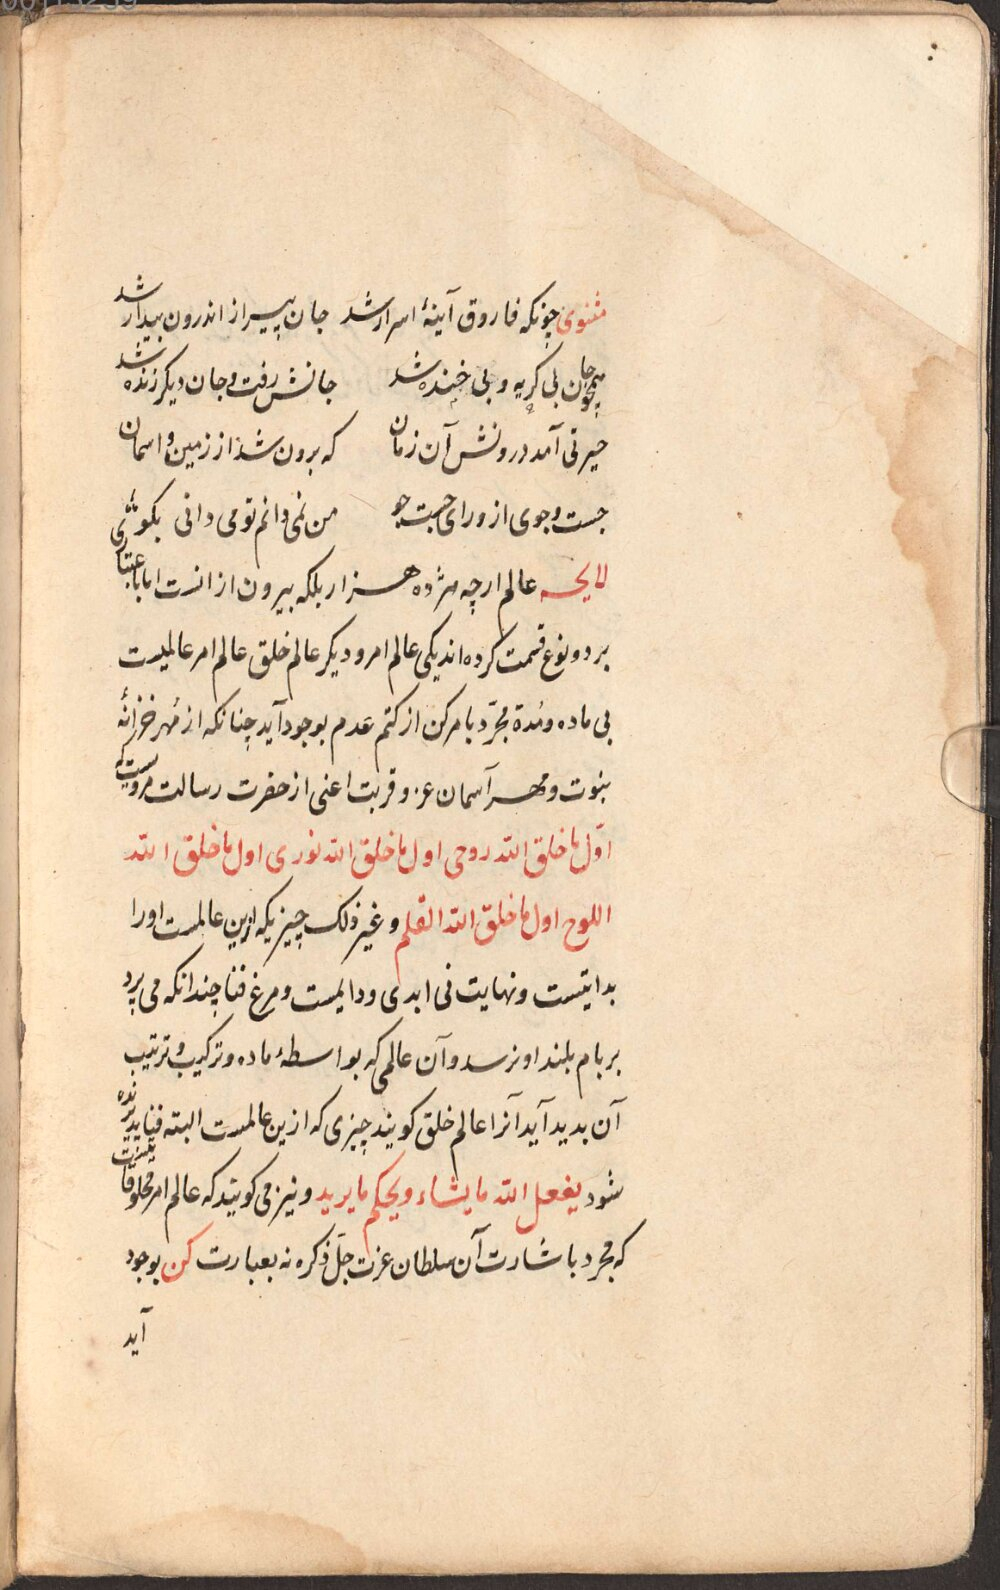 00113239
مثنوی چونکه فاروق آینهٔ اسرار شد جان پیر از اندرون بیدار شد
همچو جان بی کریه و بی خنده شد جانش رفت و جان دیکر زنده شد
حیرتی آمد درونش آن زمان که برون شد از زمین و اسمان
جست وجوی از ورای جست جو من نمی دانم تو می دانی بکو
لایحه عالم ارچه هژده هزار بلکه بیرون از انست اما باعتباری
بر دو نوع قسمت کرده اند یکی عالم امر و دیکر عالم خلق عالم امر عالمیست
بی ماده و مُدة مجرّد بامر کن از کتم عدم بوجود آید چنانکه از مُهر خزانهٔ
نبوت و مهر آسمان عز و قربت اعنی از حضرت رسالت مرویست که
اوّل ما خلق الله روحی اول ما خلق الله نوری اول ما خلق الله
اللوح اول ما خلق الله القلم و غیر ذلک چیزیکه ازین عالمست اورا
بدایتست و نهایت نی ابدی و دایمست و مرغ فنا چندانکه می پرد
بر بام بلند او نرسد و آن عالمی که بواسطهٔ ماده و ترکیب و ترتیب
آن بدید آید آنرا عالم خلق کویند چیزی که ازین عالمست البته فنا پذیرنده
شود یفعل الله ما یشاء و یحکم ما یرید و نیز می کویند که عالم امر مخلوقاتیست
که مجرد باشارت آن سلطان عزت جلّ ذکره نه بعبارت کن بوجود
آید